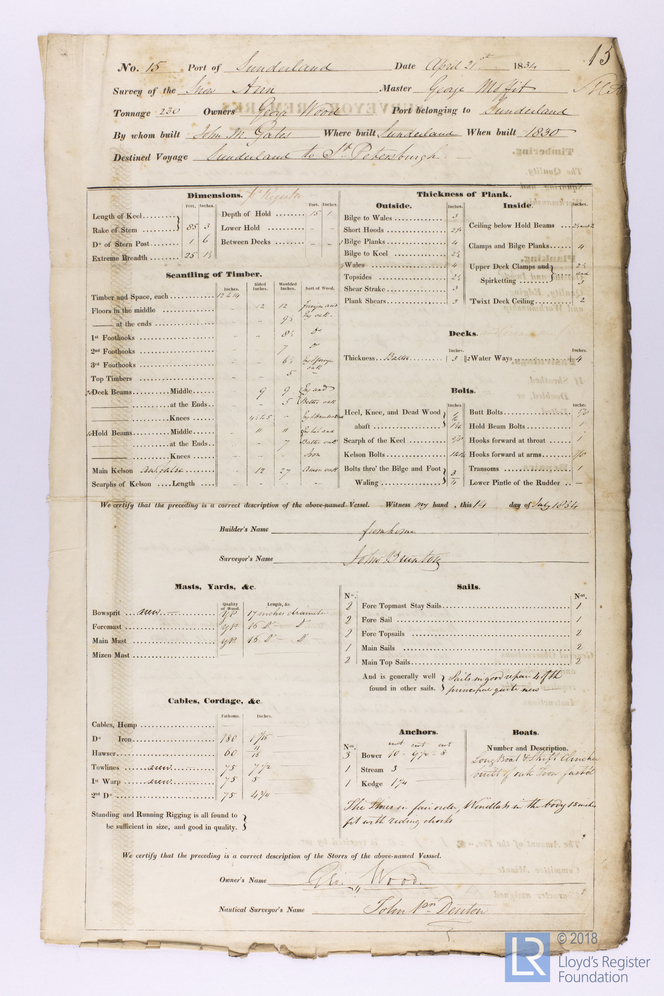 15
No. 15 Port of Sunderland Date April 21st 1834
Survey of the Snow Ann Master George Moffit
Tonnage 230 Owners George Wood Port belonging to Sunderland
By whom built John M. Gales Where built Sunderland When built 1830
Destined Voyage Sunderland to St Petersburgh
Dimensions.
Feet. Inches. Feet. Inches.
Length of Keel
Rake of Stem 85 3
Do of Stern Post 1 6
Extreme Breadth 25 1½
Depth of Hold 15 1
Lower Hold - -
Between Decks - -
Scantling of Timber.
Inches. Sided Inches. Moulded Inches. Sort of Wood.
Timber and Space, each
Floors in the middle - 12 12
at the ends - - 9½
1st Foothooks - - 8½ Do
2nd Foothooks - - 7 Do
3rd Foothooks - - 6½
Top Timbers - - 5 oak
Deck Beams Middle - 9 9
at the Ends - - 5
Knees
Hold Beams Middle - 11 11
at the Ends - - 7
Knees - - - Iron
Main Kelson - 12 27
Scarphs of Kelson Length - - -
Thickness of Plank.
Outside. Inches.
Bilge to Wales 3
Short Hoods 2½
Bilge Planks 4
Bilge to Keel 2½
Wales 4
Topsides 2½
Shear Strake 3
Plank Shears 3
Inside. Inches.
Ceiling below Hold Beams
Clamps and Bilge Planks 4
Upper Deck Clamps and Spirketting 3
'Twixt Deck Ceiling 2
Decks.
Inches. Inches.
Thickness 3 Water Ways 4
Bolts.
Inches. Inches.
Heel, Knee, and Dead Wood abaft
Scarph of the Keel
Kelson Bolts
Bolts thro' the Bilge and Foot Waling
Butt Bolts
Hold Beam Bolts 1
Hooks forward at throat 1
Hooks forward at arms
Transoms 1
Lower Pintle of the Rudder -
We certify that the preceding is a correct description of the above-named Vessel. Witness my hand, this 14 day of July 1834
Builder's Name from home
Surveyor's Name John Brunton
Masts, Yards, &c.
Quality of Wood. Length, &c.
Bowsprit new yp 17 inches diameter
Foremast yp 15 Do Do
Main Mast yp 15 Do Do
Mizen Mast
Sails.
No. No.
2 Fore Topmast Stay Sails 1
2 Fore Sail 1
2 Fore Topsails 2
1 Main Sails 2
2 Main Top Sails 2
And is generally well found in other sails. Sails in good repair 4 of the principal quite new
Cables, Cordage, &c.
Fathoms. Inches.
Cables, Hemp
Do Iron 180
Hawser 60
Towlines new 75 7½
1st Warp new 75 5
2nd Do 75 4½
Standing and Running Rigging is all found to be sufficient in size, and good in quality.
Anchors.
No. cwt cwt cwt
3 Bower 10 - 9½ - 8
1 Stream 3
1 Kedge 1¾
Boats.
Number and Description.
Long Boat & Skiff Clincher
built of oak
in fair order, Windlass in the body
fit with riding chocks
We certify that the preceding is a correct description of the Stores of the above-named Vessel.
Owner's Name Geo. Wood
Nautical Surveyor's Name John Denton
LR © 2018
Lloyd's Register
Foundation